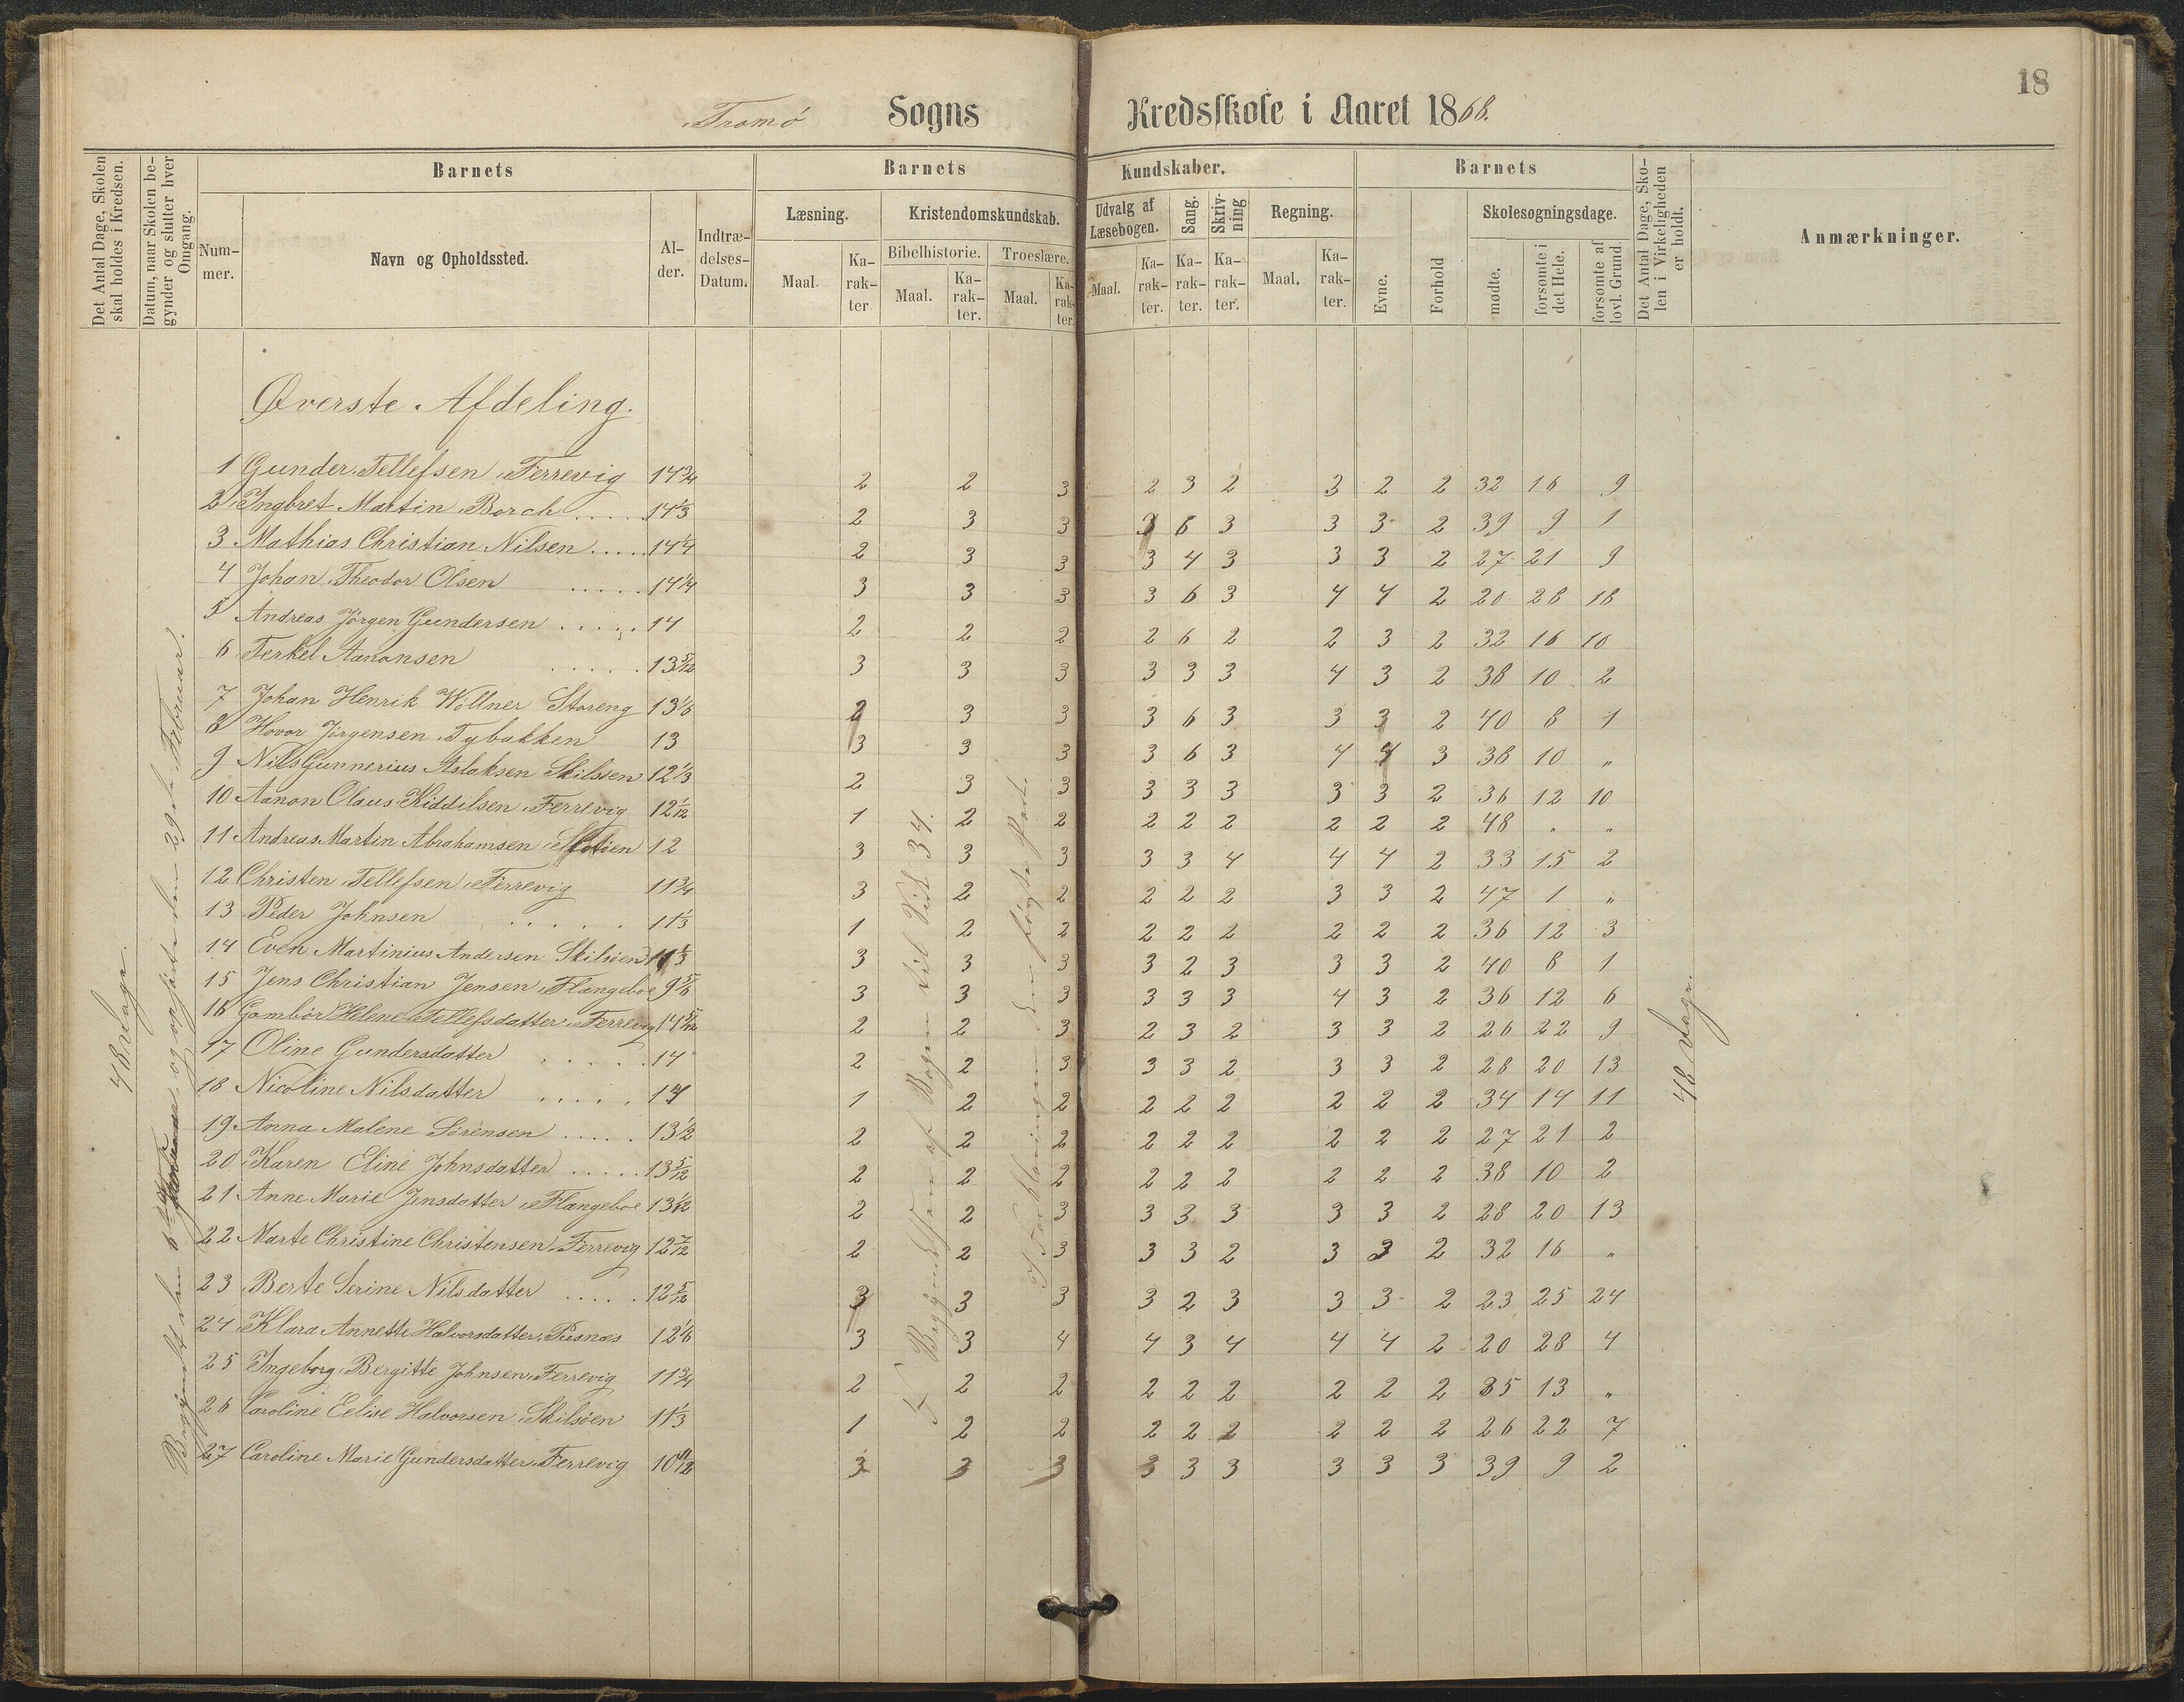 18
Tromø Sogns Kredsskole i Aaret 1868.
Det Antal Dage, Skolen skal holdes i Kredsen.
Datum, naar Skolen begynder og slutter hver Omgang.
Barnets
Nummer.
Navn og Opholdssted.
Alder.
Indtrædelses-Datum.
Barnets Kundskaber.
Læsning.
Maal.
Karakter
Kristendomskundskab.
Bibelhistorie.
Maal.
Karakter.
Troeslære.
Maal.
Karakter.
Udvalg af Læsebogen.
Maal.
Karakter.
Sang.
Karakter.
Skrivning
Karakter.
Regning.
Maal.
Karakter.
Barnets
Evne.
Forhold
Skolesøgningsdage.
mødte.
forsømte i det Hele.
forsømte af lovl. Grund.
Det Antal Dage, Skolen i Virkeligheden er holdt.
Anmærkninger.
48 Dage.
Begyndt den 6te og ophørte den 29de Februar.
Øverste Afdeling.
1 Gunder Tellefsen Færrevig 14 3/4 2 2 3 2 3 2 3 2 2 32 16 9
2 Ingbret Martin Borch ..... 14 1/3 2 3 3 3 6 3 3 3 2 39 9 1
3 Mathias Christian Nilsen ..... 14 1/4 2 3 3 3 4 3 3 3 2 27 21 9
4 Johan Theodor Olsen ..... 14 1/4 3 3 3 3 6 3 4 4 2 20 28 18
5 Andreas Jörgen Gundersen ..... 14 2 2 2 2 6 2 2 3 2 32 16 10
6 Terkel Aanonsen ..... 13 5/12 3 3 3 3 3 3 4 3 2 38 10 2
7 Johan Henrik Wöllner Storeng 13 1/6 2 3 3 3 6 3 3 3 2 40 8 1
8 Hovor Jörgensen Tybakken 13 3 3 3 3 6 3 4 4 3 38 10 "
9 Nils Gunnerius Aslaksen Skilsöen 12 1/3 2 3 3 3 3 3 3 3 2 36 12 10
10 Aanon Olaus Kiddilsen Færrevig 12 1/12 1 2 2 2 2 2 2 2 2 48 " "
11 Andreas Martin Abrahamsen 12 3 3 3 3 3 4 4 4 2 33 15 2
12 Christen Tellefsen Færrevig 11 3/4 3 2 2 2 2 2 3 3 2 47 1 "
13 Peder Johnsen ..... 11 1/3 1 2 2 2 2 2 2 2 2 36 12 3
14 Even Martinius Andersen Skilsöen 3 3 3 3 2 3 3 3 2 40 8 1
15 Jens Christian Jensen Flangeboe 9 5/6 3 3 3 3 3 3 4 3 2 36 12 6
16 Gambör Helene Tellefsdatter Færrevig 14 5/12 2 2 3 2 3 2 3 3 2 26 22 9
17 Oline Gundersdatter ..... 14 2 2 3 3 3 2 3 3 2 28 20 13
18 Nicoline Nilsdatter ..... 14 1 2 2 2 2 2 2 2 2 34 14 11
19 Anna Malene Sörensen ..... 13 1/2 2 2 2 2 2 2 2 2 2 27 21 2
20 Karen Eline Johnsdatter ..... 13 5/12 2 2 2 2 2 2 2 2 2 38 10 2
21 Anne Marie Jensdatter Flangeboe 13 1/12 2 2 3 3 3 3 3 3 2 28 20 13
22 Marte Christine Christensen Færrevig 12 7/12 2 2 3 3 3 2 3 3 2 32 16 "
23 Berte Serine Nilsdatter ..... 12 5/12 3 3 3 3 2 3 3 3 2 23 25 24
24 Klara Annette Halvorsdatter Pusnæs 12 1/6 3 3 4 4 3 4 4 4 2 20 28 4
25 Ingeborg Bergitte Johnsen Færrevig 11 3/4 2 2 2 2 2 2 2 2 2 35 13 "
26 Caroline Eelise Halvorsen Skilsöen 11 1/3 1 2 2 2 2 2 2 2 2 26 22 7
27 Caroline Marie Gundersdatter Færrevig 10 11/12 3 3 3 3 3 3 3 3 3 39 9 2
Fr Begyndelsen af Bogen til Vid 34.
I Forklaringen den förste Part.
48 Dage.